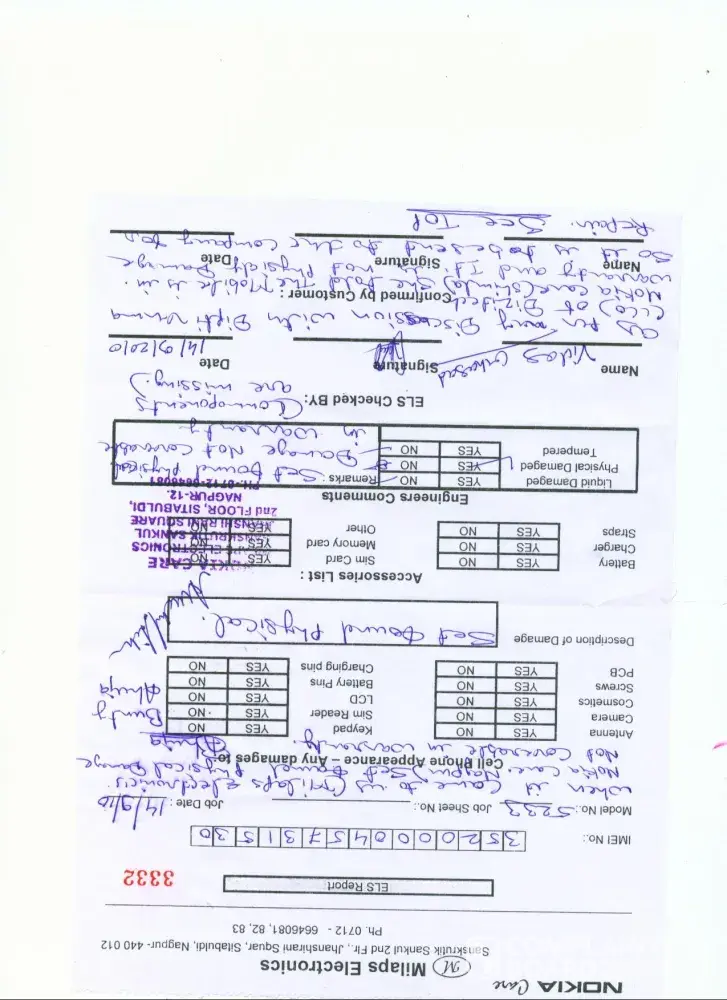 NOKIA Care
M Milaps Electronics
Sanskrutik Sankul 2nd Flr., Jhanshirani Squar, Sitabuldi, Nagpur- 440 012
Ph. 0712 - 6646081, 82, 83
ELS Report
3332
IMEI No.: 35200004573 15 30
Model No.: 5233 Job Sheet No.: Job Date : 14/9/10
when it came to us (Milaps Electronics
Nokia Care Nagpur) Set Found Physical Damage
Cell Phone Appearance – Any damages to :
Not Coverable in warranty.
Antenna YES NO Keypad YES NO
Camera YES NO Sim Reader YES NO
Cosmetics YES NO LCD YES NO
Screws YES NO Battery Pins YES NO
PCB YES NO Charging pins YES NO
Bunty
Ahuja
Description of Damage Set Found Physical.
Accessories List :
Battery YES NO Sim Card YES NO
Charger YES NO Memory card YES NO
Straps YES NO Other YES NO
NOKIA CARE
ELECTRONICS
SANSKRUTIK SANKUL
JHANSHI RANI SQUARE
2nd FLOOR, SITABULDI,
NAGPUR-12.
PH.-0712-6646081
Engineers Comments
Liquid Damaged YES NO
Physical Damaged YES NO
Tempered YES NO
Remarks : Set Found Physical
Damage Not Coverable
in warranty
ELS Checked BY: (Components
are missing).
Name Signature Date
Vikas 14/9/2010
as per my Discussion with Dipti Verma
(CCO) of Dizifed
Confirmed by Customer :
Nokia care (Sitabuldi) She told the Mobile is in
warranty and It is not Physical Damage
Name Signature Date
So it is to be send to the company for
Repair. See To!